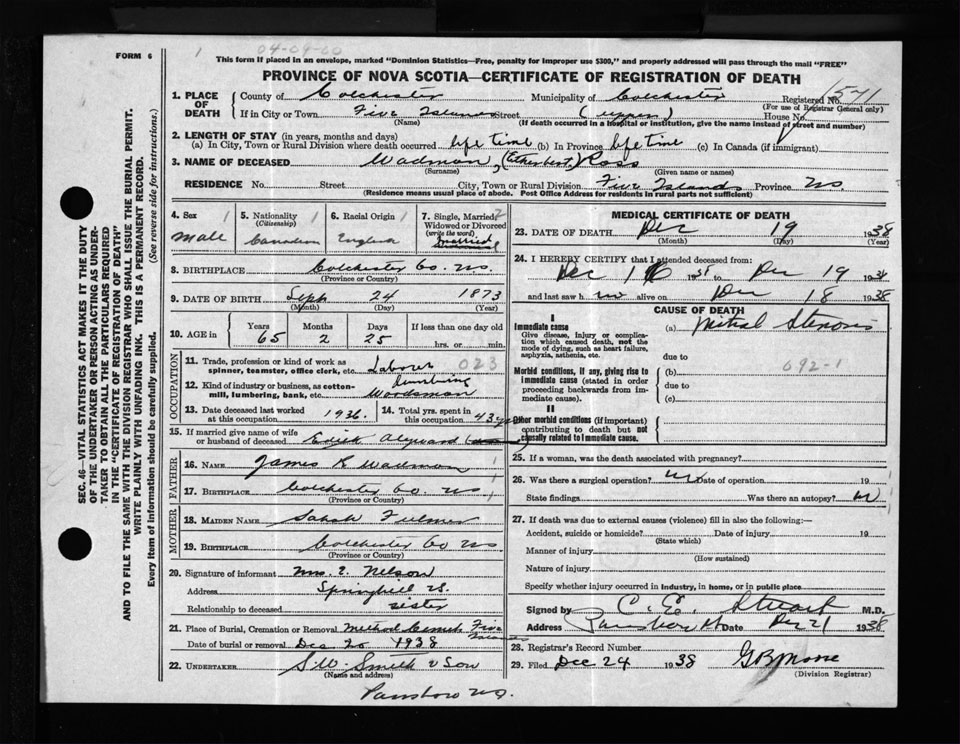 FORM 6
1
04-09-60
This form if placed in an envelope, marked "Dominion Statistics—Free, penalty for improper use $300," and properly addressed will pass through the mail "FREE"
PROVINCE OF NOVA SCOTIA—CERTIFICATE OF REGISTRATION OF DEATH
1. PLACE OF DEATH
County of Colchester Municipality of Colchester Registered No. 571
(For use of Registrar General only)
If in City or Town Five Islands Street (upper) House No.
(Name) (If death occurred in a hospital or institution, give the name instead of street and number)
2. LENGTH OF STAY (in years, months and days)
(a) In City, Town or Rural Division where death occurred life time (b) In Province life time (c) In Canada (if immigrant)
3. NAME OF DECEASED Wadman, Ross
(Surname) (Given name or names)
RESIDENCE No. Street City, Town or Rural Division Five Islands Province NS
(Residence means usual place of abode. Post Office Address for residents in rural parts not sufficient)
4. Sex 1 Male
5. Nationality (Citizenship) 1 Canadian
6. Racial Origin 1 English
7. Single, Married, Widowed or Divorced (write the word) 2 Married
8. BIRTHPLACE Colchester Co. NS.
(Province or Country)
9. DATE OF BIRTH Sept 24 1873
(Month) (Day) (Year)
10. AGE in Years 65 Months 2 Days 25 If less than one day old
hrs. or min.
OCCUPATION
11. Trade, profession or kind of work as spinner, teamster, office clerk, etc. Labour 023
12. Kind of industry or business, as cotton-mill, lumbering, bank, etc. Lumbering Woodsman
13. Date deceased last worked at this occupation 1936
14. Total yrs. spent in this occupation 43 yrs
15. If married give name of wife or husband of deceased Edith
FATHER
16. NAME James R Wadman
17. BIRTHPLACE Colchester Co. NS
(Province or Country)
MOTHER
18. MAIDEN NAME Sarah Fulmer
19. BIRTHPLACE Colchester Co NS
(Province or Country)
20. Signature of informant Mrs. E. Nelson
Address Springhill NS.
Relationship to deceased sister
21. Place of Burial, Cremation or Removal Five Islands
Date of burial or removal Dec 20 1938
22. UNDERTAKER S.W. Smith & Son
(Name and address)
Parrsboro NS.
MEDICAL CERTIFICATE OF DEATH
23. DATE OF DEATH Dec 19 1938
(Month) (Day) (Year)
24. I HEREBY CERTIFY that I attended deceased from:
Dec 16 1938 to Dec 19 1938
and last saw him alive on Dec 18 1938
CAUSE OF DEATH
I
Immediate cause
Give disease, injury or complication which caused death, not the mode of dying, such as heart failure, asphyxia, asthenia, etc.
(a) Mitral Stenosis
due to
Morbid conditions, if any, giving rise to immediate cause (stated in order proceeding backwards from immediate cause).
(b) 092-1
due to
(c)
II
Other morbid conditions (if important) contributing to death but not causally related to immediate cause.
25. If a woman, was the death associated with pregnancy?
26. Was there a surgical operation? no Date of operation 19
State findings Was there an autopsy? no
27. If death was due to external causes (violence) fill in also the following:—
Accident, suicide or homicide? Date of injury 19
(State which)
Manner of injury
(How sustained)
Nature of injury
Specify whether injury occurred in industry, in home, or in public place
Signed by C. E. Stuart M.D.
Address Parrsboro NS Date Dec 21 1938
28. Registrar's Record Number
29. Filed Dec 24 1938 G B Morse
(Division Registrar)
SEC. 46—VITAL STATISTICS ACT MAKES IT THE DUTY
OF THE UNDERTAKER OR PERSON ACTING AS UNDER-
TAKER TO OBTAIN ALL THE PARTICULARS REQUIRED
IN THE "CERTIFICATE OF REGISTRATION OF DEATH"
AND TO FILE THE SAME WITH THE DIVISION REGISTRAR WHO SHALL ISSUE THE BURIAL PERMIT.
WRITE PLAINLY WITH UNFADING INK. THIS IS A PERMANENT RECORD.
Every item of information should be carefully supplied. (See reverse side for instructions.)